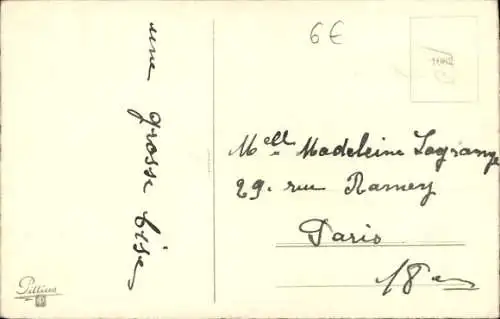 une grosse bise
6€
Melle Madeleine Lagrange
29. rue Ramey
Paris
18 em
Pittius